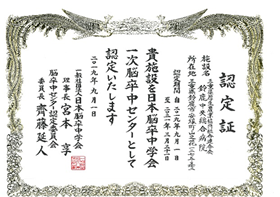 認定証
施設名 三重県厚生農業協同組合連合会
鈴鹿中央総合病院
所在地 三重県鈴鹿市安塚町
認定期間 自 二〇一九年九月一日
貴施設を日本脳卒中学会
一次脳卒中センターとして
認定いたします
二〇一九年九月一日
一般社団法人日本脳卒中学会
理事長 宮本 享
脳卒中センター認定委員会
委員長 齊藤延人